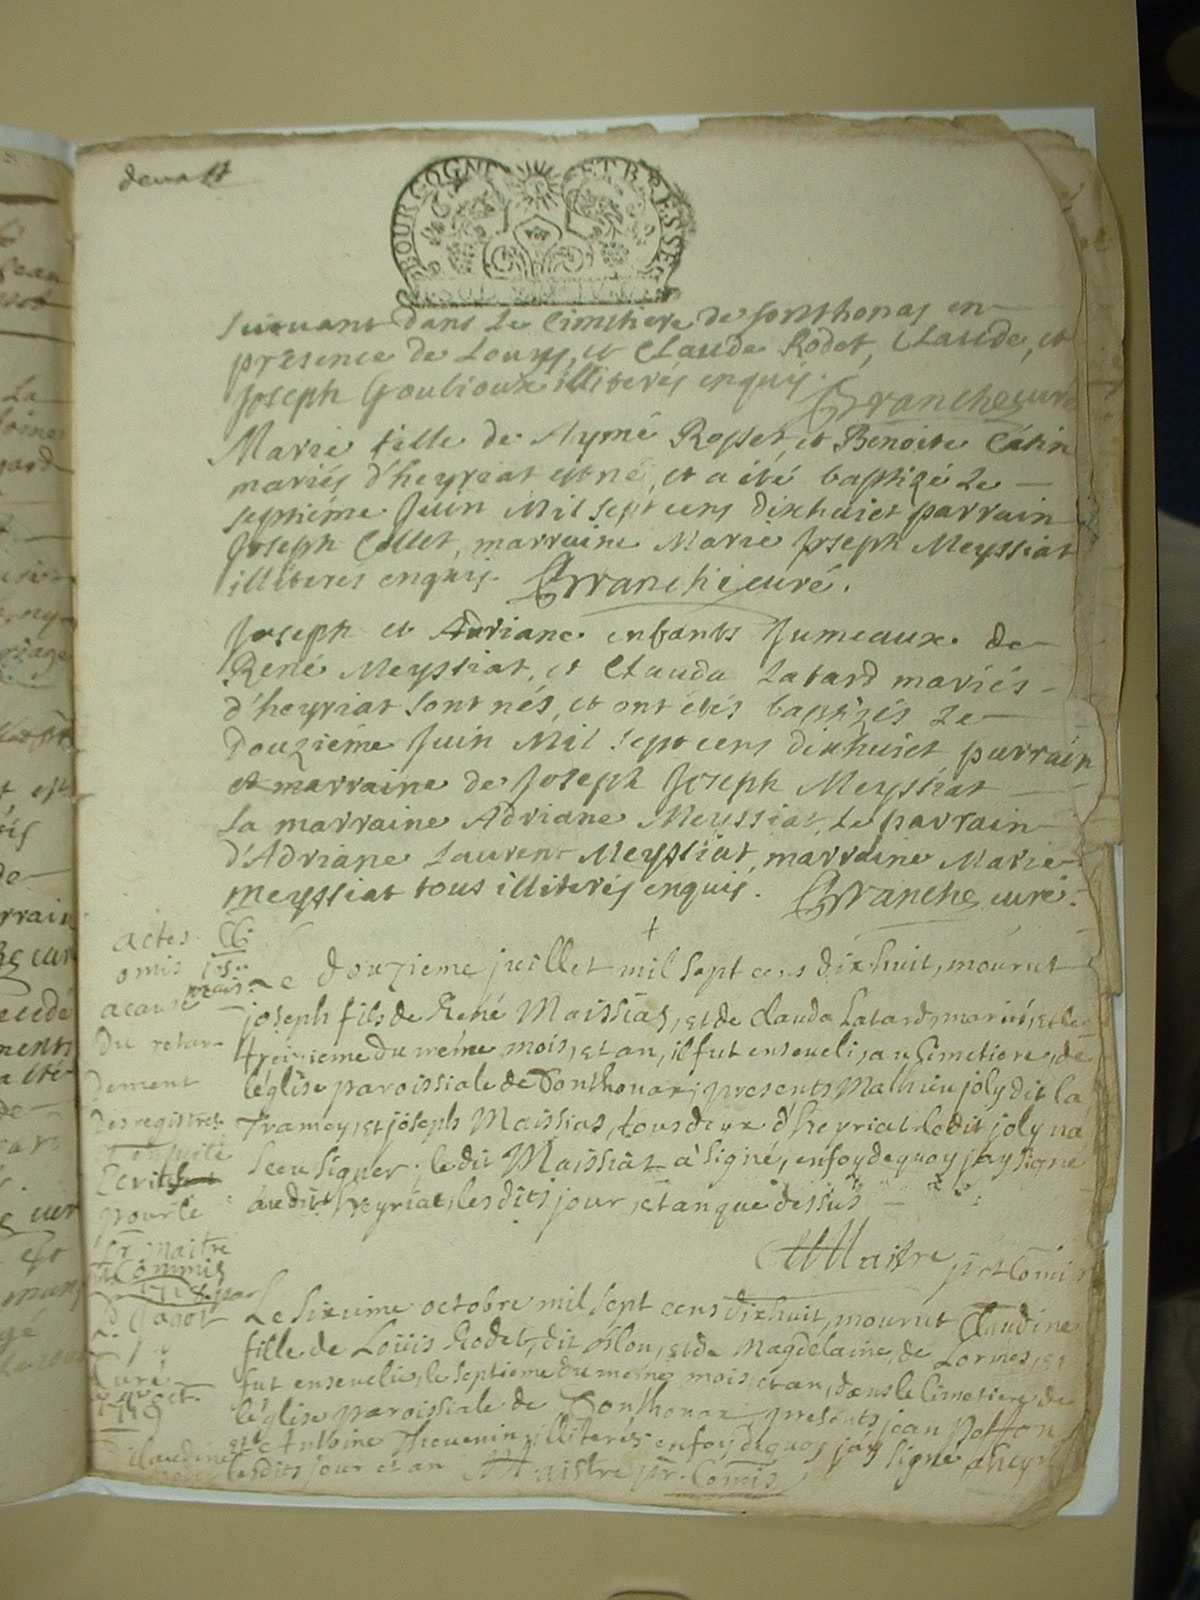 BOURGOGNE ET BRESSE
suivant dans le Cimetiere de Sonthonas en
presence de Louys, et Claude Rodet, Claude, et
Joseph Goulioux illiterés enquis. Granche curé
Marie fille de Aymé Rosset, et Benoite Catin
mariés d'heyriat est né, et a été baptizé le
septiéme Juin Mil sept cens dixhuict parrain
Joseph Collet, marraine Marie Joseph Meyssiat
illiterés enquis. Granche curé.
Joseph et Adriane enfants Jumeaux de
René Meyssiat, et Clauda Latard mariés
d'heyriat sont nés, et ont étés baptizés le
Douziéme Juin Mil sept cens dixhuict parrain
et marraine de Joseph Joseph Meyssiat
la marraine Adriane Meyssiat, le parrain
d'Adriane Laurent Meyssiat, marraine Marie
Meyssiat tous illiterés enquis. Granche curé.
Le douzieme juillet mil sept cens dixhuit, mourut
joseph fils de René Maissiat, et de Clauda Latard, mariés, et le
treizieme du méme mois, et an, il fut enseveli, au Cimetiere, de
léglise paroissiale de Sonthonax; presents Mathieu joly dit la
Tramey, et joseph Maissiat, tous deux d'heyriat ledit joly na
sceu signer; le dit Maissiat à signé, en foy de quoy jay signé
audit heyriat, les dits jour, et an que dessus
Maistre ptr Comis
Le sixieme octobre mil sept cens dixhuit, mourut Claudine
fille de Loüis Rodet, dit, et de Magdelaine, de Lormes, et
fut ensevelie, le septieme du meme mois, et an, dans le cimetiere de
léglise paroissiale de Sonthonax, presents jean Potton
et Antoine Thevenin, illiterés; en foy de quoy jay signé a heyriat
lesdits jour et an Maistre ptr. Comis
actes
omis
a cause
du retar-
dement
des registres
Ecrits
pour le
Sr maitre
Commis
Curé
1719